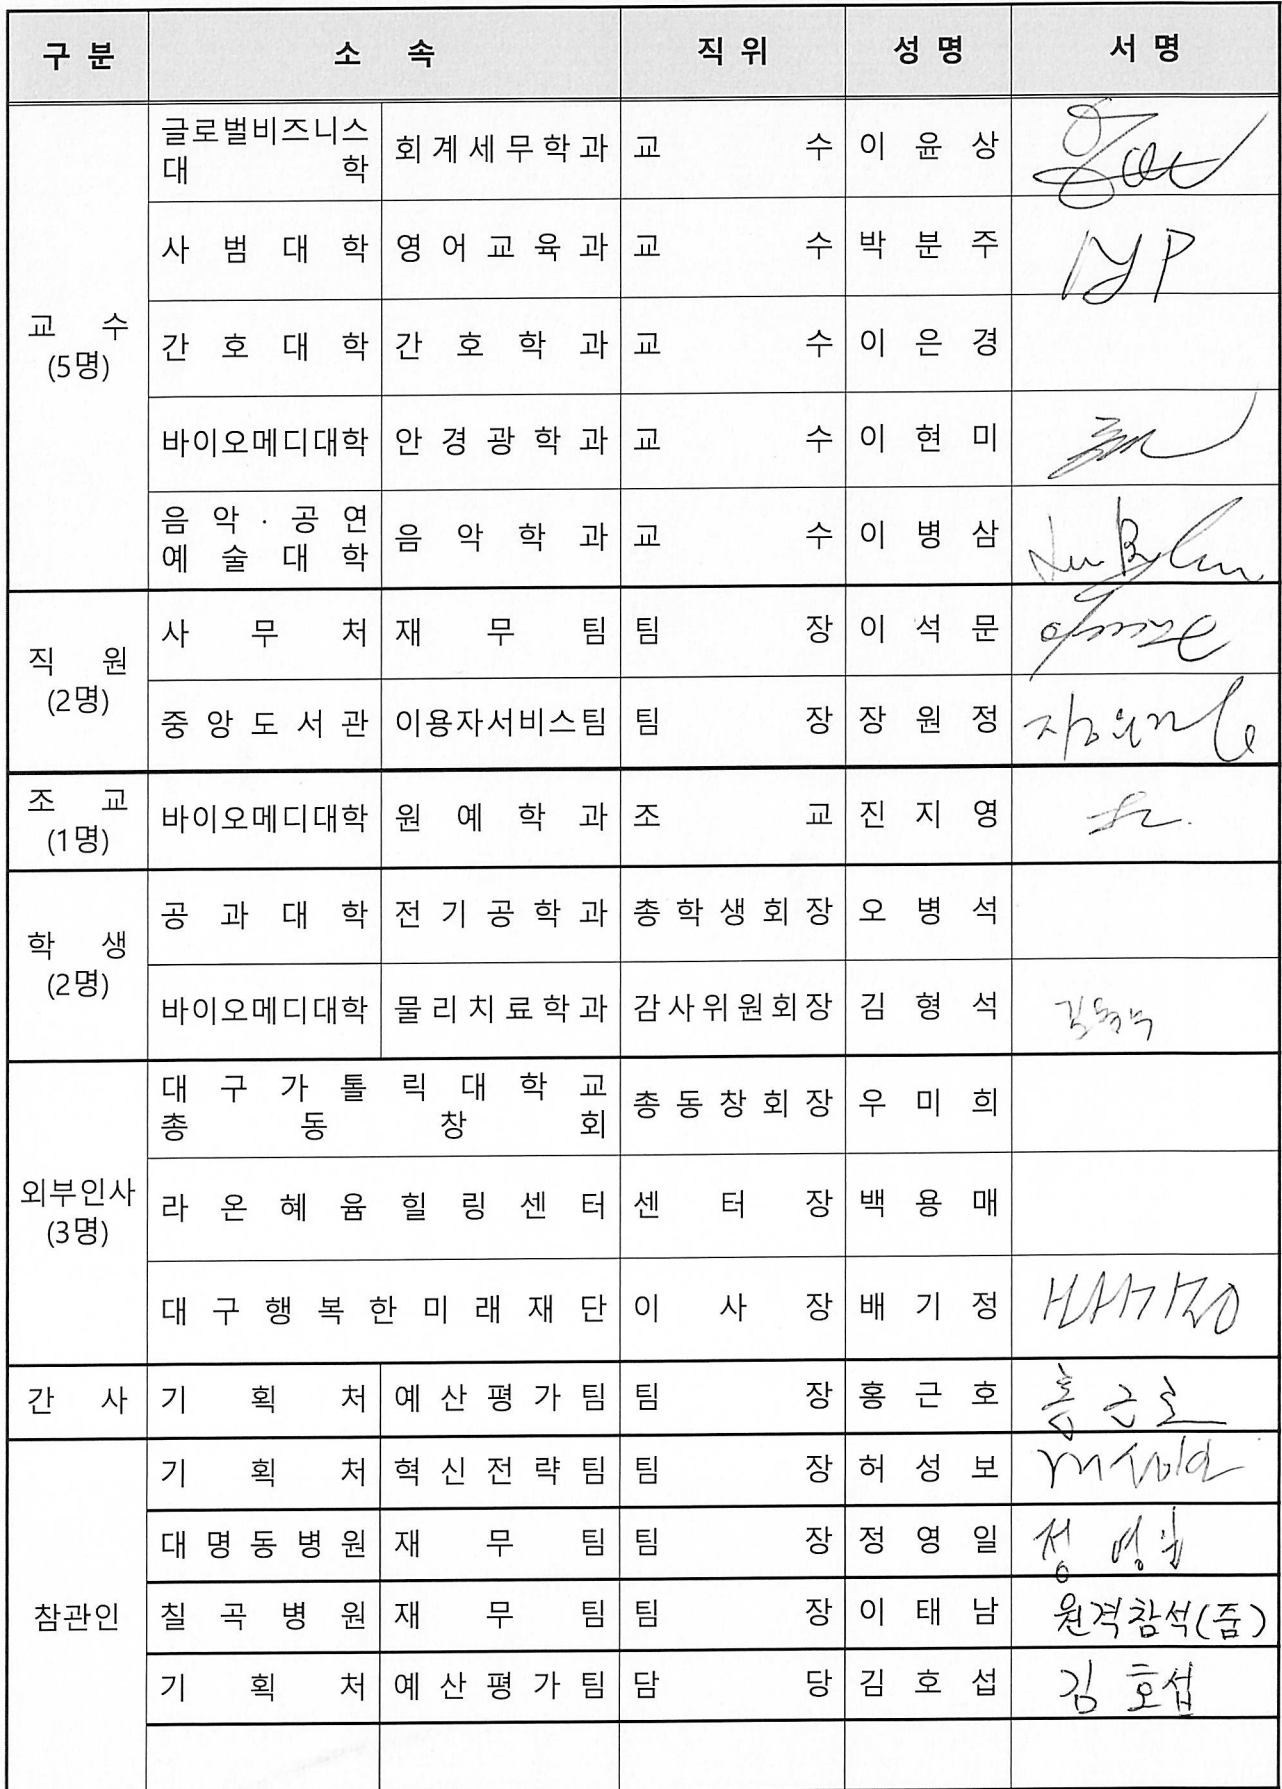 구 분 소 속 직 위 성 명 서 명
교 수
(5명)
글로벌비즈니스
대 학
회계세무학과 교 수 이 윤 상
사 범 대 학 영어교육과 교 수 박 분 주 P
간 호 대 학 간 호 학 과 교 수 이 은 경
바이오메디대학 안경광학과 교 수 이 현 미
음 악 · 공 연
예 술 대 학
음 악 학 과 교 수 이 병 삼
직 원
(2명)
사 무 처 재 무 팀 팀 장 이 석 문
중 앙 도 서 관 이용자서비스팀 팀 장 장 원 정 장원정
조 교
(1명)
바이오메디대학 원 예 학 과 조 교 진 지 영
학 생
(2명)
공 과 대 학 전기공학과 총학생회장 오 병 석
바이오메디대학 물리치료학과 감사위원회장 김 형 석
외부인사
(3명)
대 구 가 톨 릭 대 학 교
총 동 창 회
총동창회장 우 미 희
라 온 혜 윰 힐 링 센 터 센 터 장 백 용 매
대 구 행 복 한 미 래 재 단 이 사 장 배 기 정 배기정
간 사 기 획 처 예산평가팀 팀 장 홍 근 호 홍근호
참관인
기 획 처 혁신전략팀 팀 장 허 성 보
대명동병원 재 무 팀 팀 장 정 영 일 정영일
칠 곡 병 원 재 무 팀 팀 장 이 태 남 원격참석(줌)
기 획 처 예산평가팀 담 당 김 호 섭 김호섭